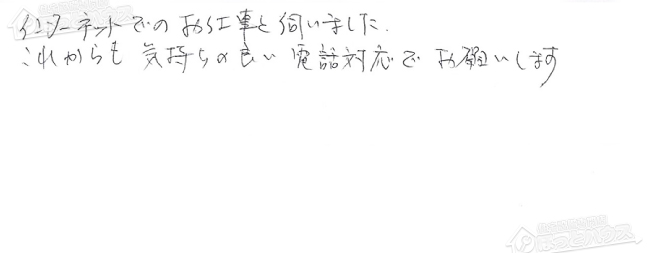 インターネットでのお仕事と伺いました.
これからも 気持ちの良い 電話対応で お願いします